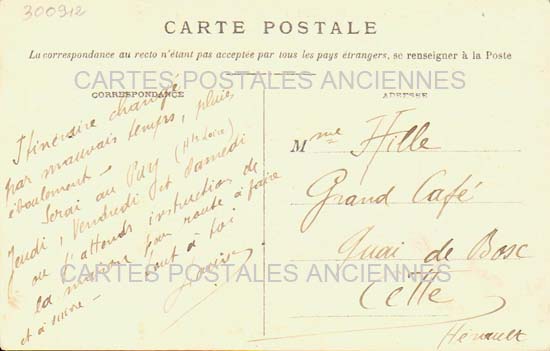 300912
CARTE POSTALE
La correspondance au recto n'étant pas acceptée par tous les pays étrangers, se renseigner à la Poste
CARTES POSTALES ANCIENNES
CORRESPONDANCE
Itineraire changé
par mauvais temps, pluie,
éboulement -
Serai au Puy (Hte Loire)
Jeudi, Vendredi et Samedi
ou j'attends instruction de
la maison pour route à faire
et à suivre -
tout à toi
ADRESSE
Mme Hille
Grand Café
Quai de Bosc
Cette
Hérault
CARTES POSTALES ANCIENNES